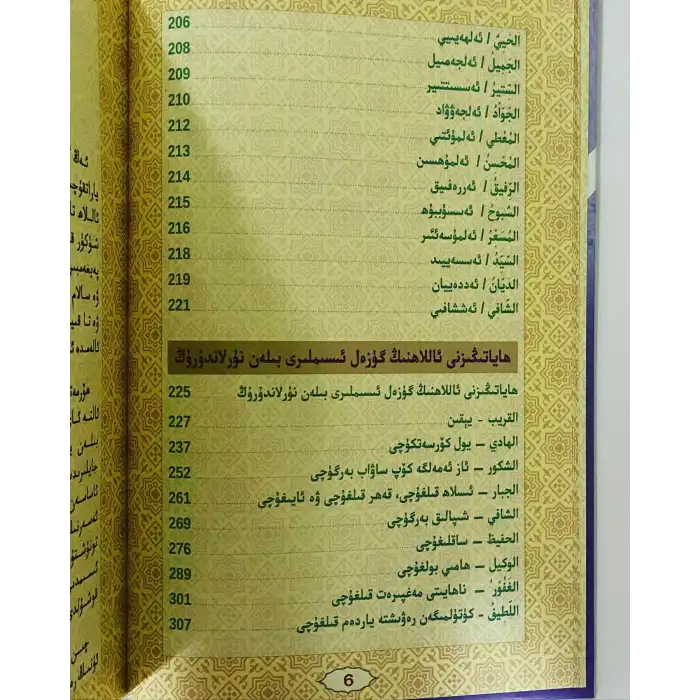 الحَييُ / ئەلھەيىي 206
الجَمِيلُ / ئەلجەمىيل 208
السَّتيرُ / ئەسسىتتىير 209
الجَوَادُ / ئەلجەۋۋاد 210
المُعْطي / ئەلمۇئتىي 212
المُحْسنُ / ئەلمۇھسىن 213
الرَّفيقُ / ئەررەفىيق 214
السُّبوحُ / ئەسسۇببۇھ 215
المُسَعِّرُ / ئەلمۇسەئئىر 216
السَّيّدُ / ئەسسەييىد 218
الدَيَّانُ / ئەددەييان 219
الشَّافي / ئەششافىي 221
ھاياتىڭىزنى ئاللاھنىڭ گۈزەل ئىسىملىرى بىلەن نۇرلاندۇرۇڭ
ھاياتىڭىزنى ئاللاھنىڭ گۈزەل ئىسىملىرى بىلەن نۇرلاندۇرۇڭ 225
القريب - يېقىن 227
الهادي – يول كۆرسەتكۈچى 237
الشكور – ئاز ئەمەلگە كۆپ ساۋاب بەرگۈچى 252
الجبار – ئىسلاھ قىلغۇچى، قەھر قىلغۇچى ۋە ئايىغۇچى 261
الشافي – شىپالىق بەرگۈچى 269
الحفيظ – ساقلىغۇچى 276
الوكيل – ھامىي بولغۇچى 289
الغَفُورُ – ناھايىتى مەغپىرەت قىلغۇچى 301
اللَّطِيفُ - كۈتۈلمىگەن رەۋىشتە ياردەم قىلغۇچى 307
6
ئەڭ
ياراتقۇچى
ئاللاھ تا
شۈكۈر ق
پەيغەمبى
ۋە سالام
ۋە تا قىي
ئالەمدە ئ
ھۆرمە
بىلەن